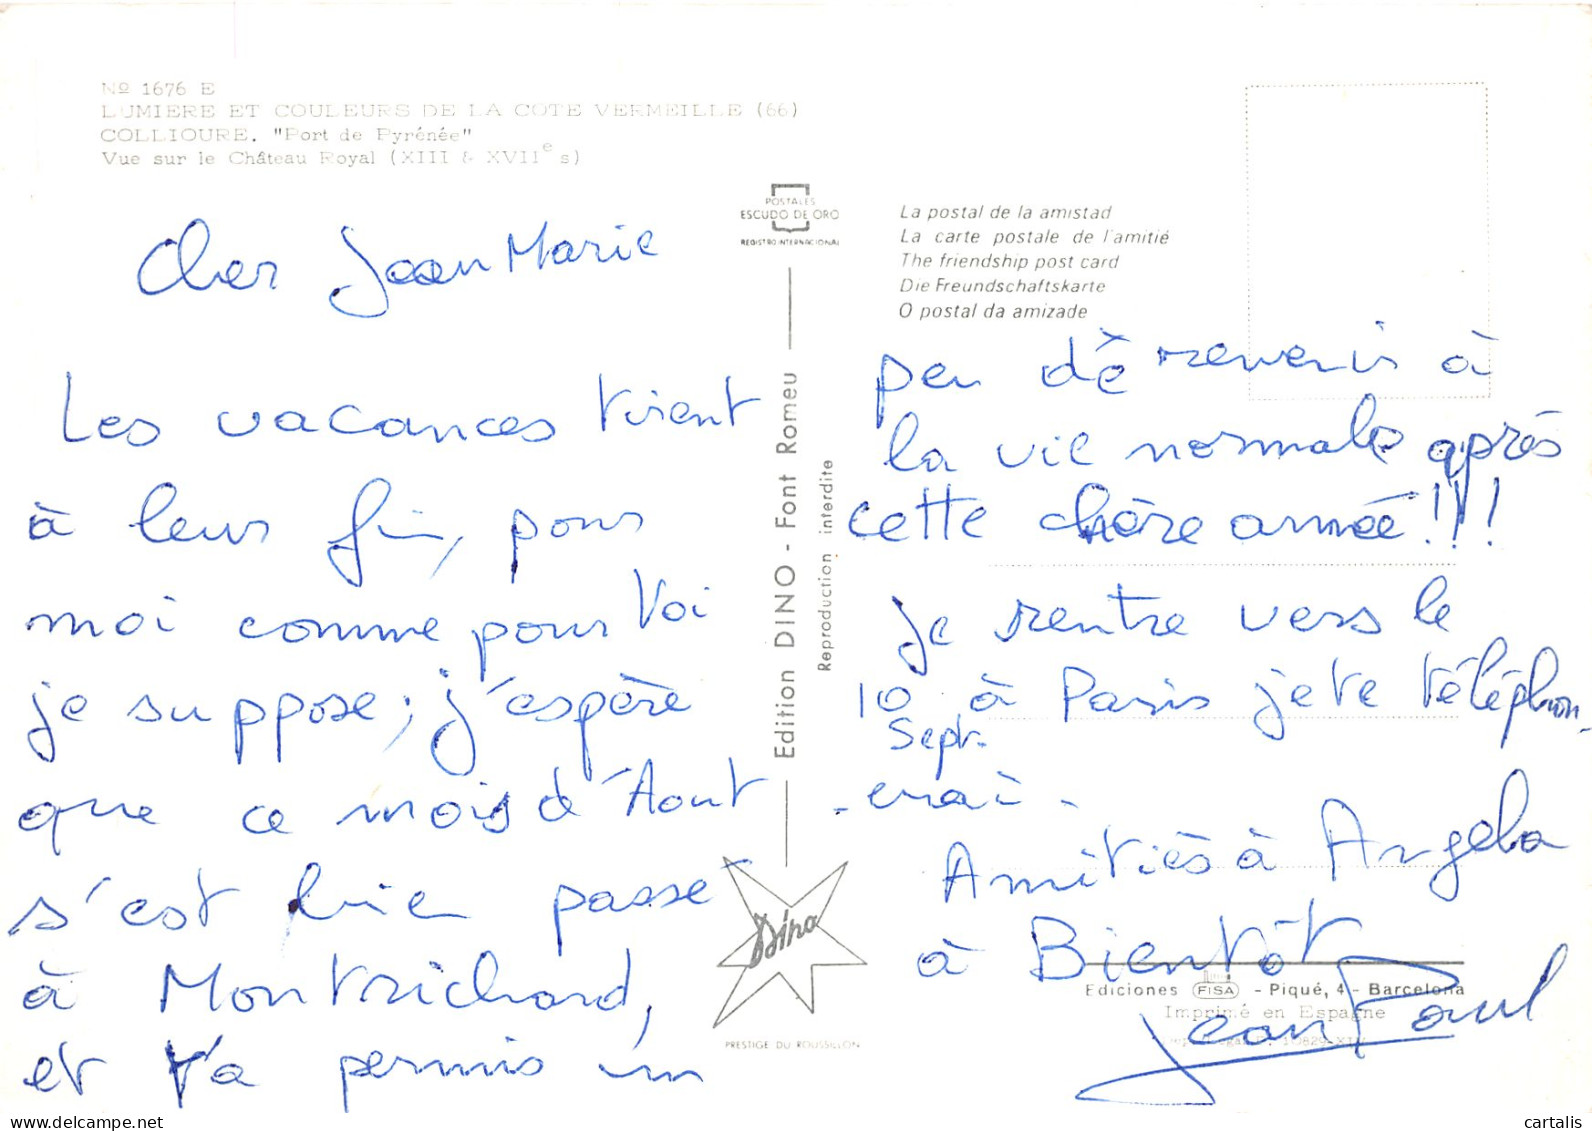 Nº 1676 E
LUMIERE ET COULEURS DE LA COTE VERMEILLE (66)
COLLIOURE. "Port de Pyrénée"
Vue sur le Château Royal (XIII & XVIIe s)
POSTALES
ESCUDO DE ORO
REGISTRO INTERNACIONAL
La postal de la amistad
La carte postale de l'amitié
The friendship post card
Die Freundschaftskarte
O postal da amizade
Cher Jean Marie
Les vacances tirent
à leur fin, pour
moi comme pour toi
je suppose; j'espère
que ce mois d'Aout
s'est bien passé
à Montrichard,
et t'a permis un
Edition DINO - Font Romeu
Reproduction interdite
Dino
PRESTIGE DU ROUSSILLON
peu de revenir à
la vie normale après
cette chère année!!!
Je rentre vers le
10 à Paris je te téléphon-
Sept.
-erai-
Amitiés à Angela
à Bientôt
Jean Paul
Ediciones FISA - Piqué, 4 - Barcelona
Imprimé en Espagne